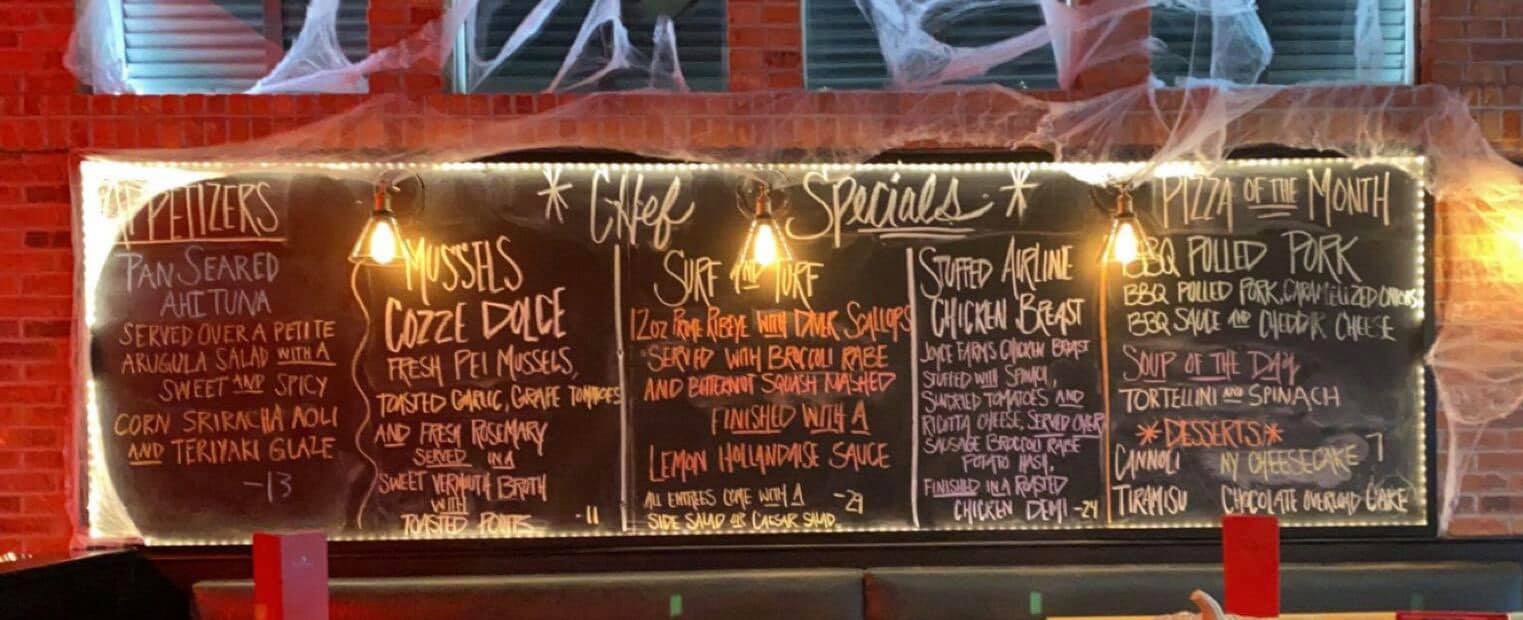 APPETIZERS
PAN SEARED
AHI TUNA
SERVED OVER A PETITE
ARUGULA SALAD WITH A
SWEET AND SPICY
CORN SRIRACHA AOLI
AND TERIYAKI GLAZE
-13
* CHef Specials *
MUSSELS
COZZE DOLCE
FRESH PEI MUSSELS,
TOASTED GARLIC, GRAPE TOMATOES
AND FRESH ROSEMARY
SERVED IN A
SWEET VERMOUTH BROTH
WITH
TOASTED POINTS -11
SURF AND TURF
12oz PRIME RIBEYE WITH DIVER SCALLOPS
SERVED WITH BROCCOLI RABE
AND BUTTERNUT SQUASH MASHED
FINISHED WITH A
LEMON HOLLANDAISE SAUCE
ALL ENTREES COME WITH A -29
SIDE SALAD OR CAESAR SALAD
STUFFED AIRLINE
CHICKEN BREAST
JOYCE FARMS CHICKEN BREAST
STUFFED WITH SPINACH,
SUNDRIED TOMATOES AND
RICOTTA CHEESE, SERVED OVER
SAUSAGE BROCCOLI RABE
POTATO HASH,
FINISHED IN A ROASTED
CHICKEN DEMI -24
PIZZA OF THE MONTH
BBQ PULLED PORK
BBQ PULLED PORK, CARAMELIZED ONIONS
BBQ SAUCE AND CHEDDAR CHEESE
SOUP OF THE DAY
TORTELLINI AND SPINACH
*DESSERTS*
CANNOLI NY CHEESECAKE 7
TIRAMISU CHOCOLATE OVERLOAD CAKE